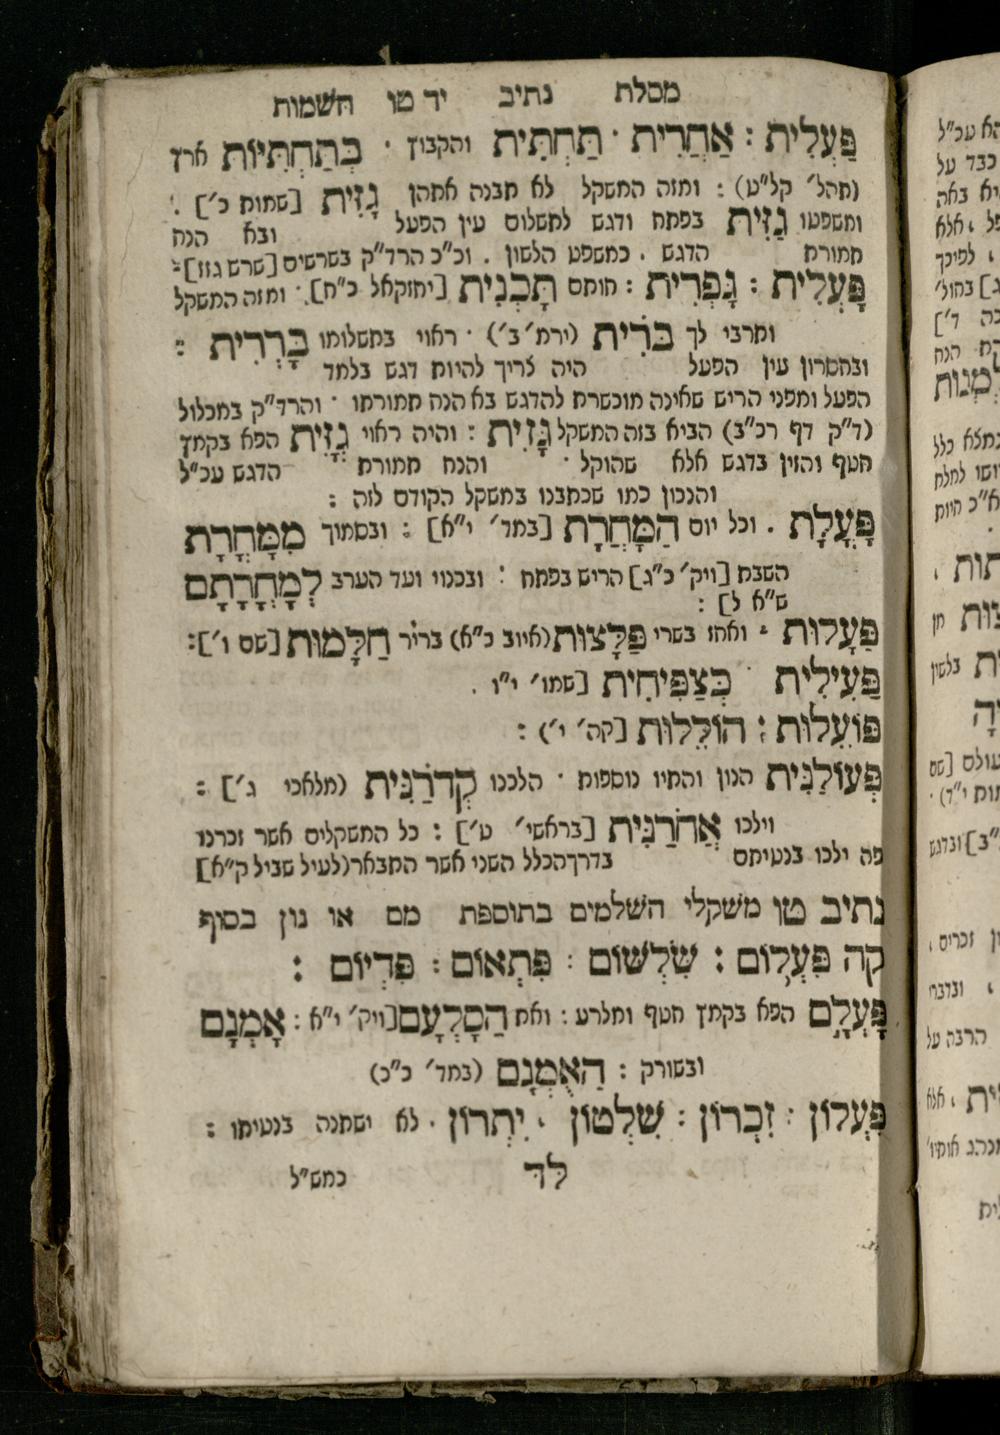 מסלת נתיב יד טו השמות
פַּעְלִית : אַחֲרִית · תַּחְתִּית והקבוץ · בְּתַחְתִּיּוֹת ארץ
(תהל׳ קל״ט) : ומזה המשקל לא מבנה אתהן גָּזִית [שמות כ׳] .
ומשפטו גַּזִּית בפתח ודגש לתשלום עין הפעל ובא הנח
תמורת הדגש . כמשפט הלשון . וכ״כ הרד״ק בשרשים [שרש גזז] :
פָּעְלִית : גָּפְרִית : חותם תָּכְנִית [יחזקאל כ״ח] . ומזה המשקל
ומרבי לך בֹּרִית (ירמ׳ ב׳) · ראוי בתשלומו בָּרְרִית :
ובחסרון עין הפעל היה צריך להיות דגש בלמד
הפעל ומפני הריש שאינה מוכשרת להדגש בא הנח תמורתו · והרד״ק במכלול
(ד״ק דף רכ״ב) הביא בזה המשקל גָּזִית : והיה ראוי גָּזִּית הפא בקמץ
חטף והזין בדגש אלא שהוקל · והנח תמורת הדגש עכ״ל
והנכון כמו שכתבנו במשקל הקודם לזה :
פָּעֳלָת . וכל יום הַמָּחֳרָת [במד׳ י״א] : ובסמוך מִמָּחֳרַת
השבת [ויק׳ כ״ג] הריש בפתח : ובכנוי ועד הערב לְמָחֳרָתָם
ש״א ל] :
פַּעָלוּת . ואחז בשרי פַּלָּצוּת (איוב כ״א) בריר חַלָּמוּת [שם ו׳] :
פַּעִילִית · כְּצַפִּיחִית [שמו׳ י״ו .
פּוֹעֵלוּת : הוֹלֵלוּת [קה׳ י׳) :
פְּעוֹלַנִּית הנון והתיו נוספות · הלכנו קְדֹרַנִּית (מלאכי ג׳] :
וילכו אֲחֹרַנִּית [בראשי׳ ט׳] : כל המשקלים אשר זכרנו
פה ילכו בנטיתם בדרך הכלל השני אשר התבאר (לעיל שביל ק״א]
נתיב טו משקלי השלמים בתוספת מם או נון בסוף
קה פִּעְלוֹם : שִׁלְשׁוֹם : פִּתְאוֹם : פִּדְיוֹם :
פָּעְלָם הפא בקמץ חטף ומלרע : ואת הַסָּלְעָם [ויק׳ י״א : אָמְנָם
ובשורק : הַאֻמְנָם (במד׳ כ״כ)
פִּעְלוֹן : זִכְרוֹן : שִׁלְטוֹן . יִתְרוֹן . לא ישתנה בנטיתו :
לד כמש״ל